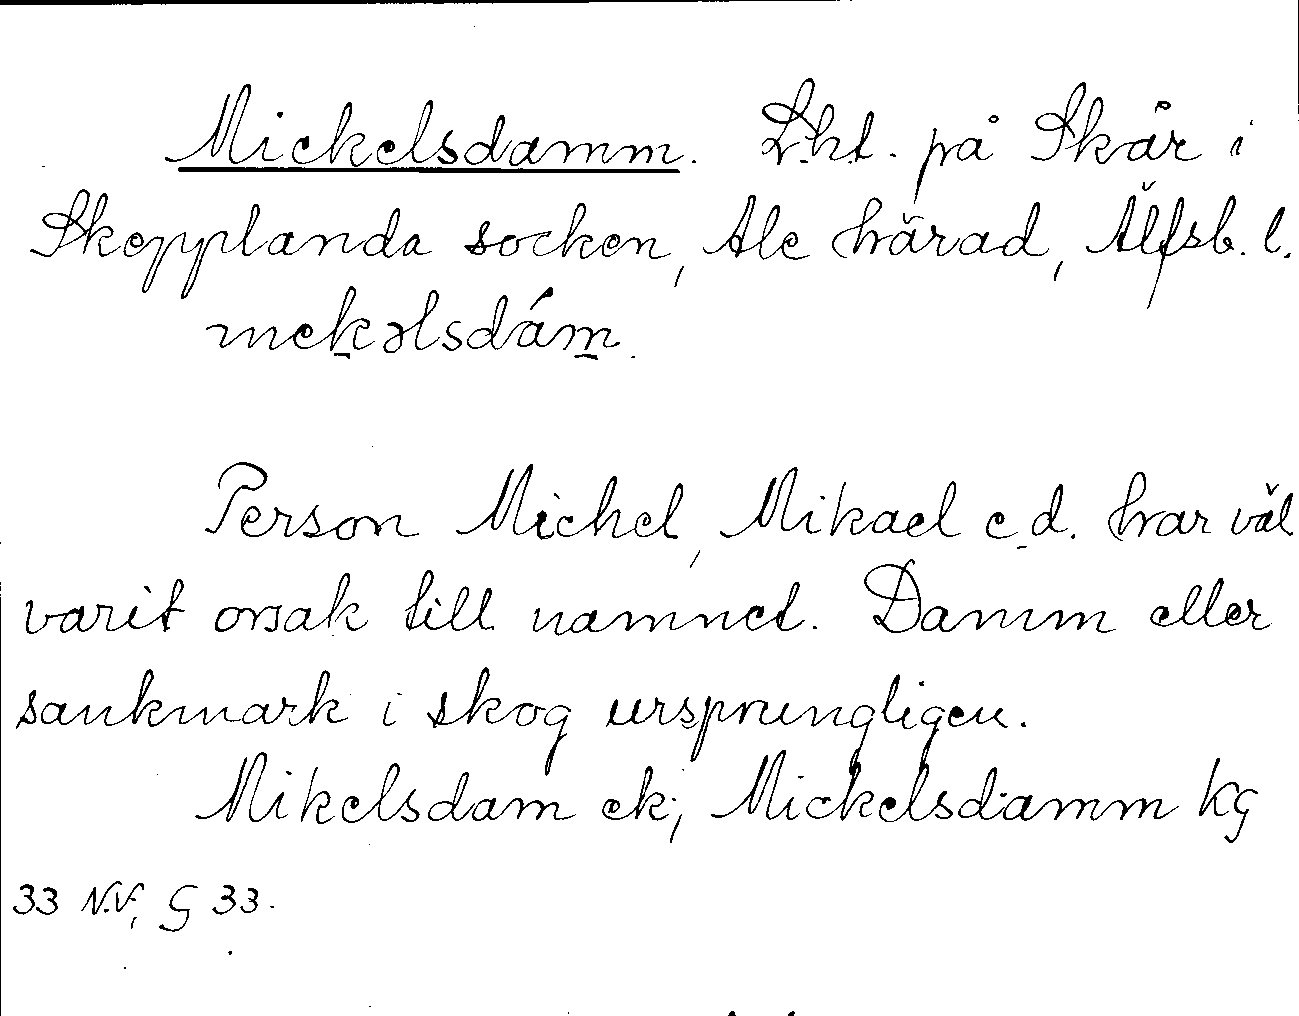 Mickelsdamm. Lht. på Skår i
Skepplanda socken, Ale härad, Älfsb. l.
mek̲əlsdám̲.
Person Michel, Mikael e.d. har väl
varit orsak till namnet. Damm eller
sankmark i skog ursprungligen.
Mikelsdam ek; Mickelsdamm kg
33 N.V., G 33.